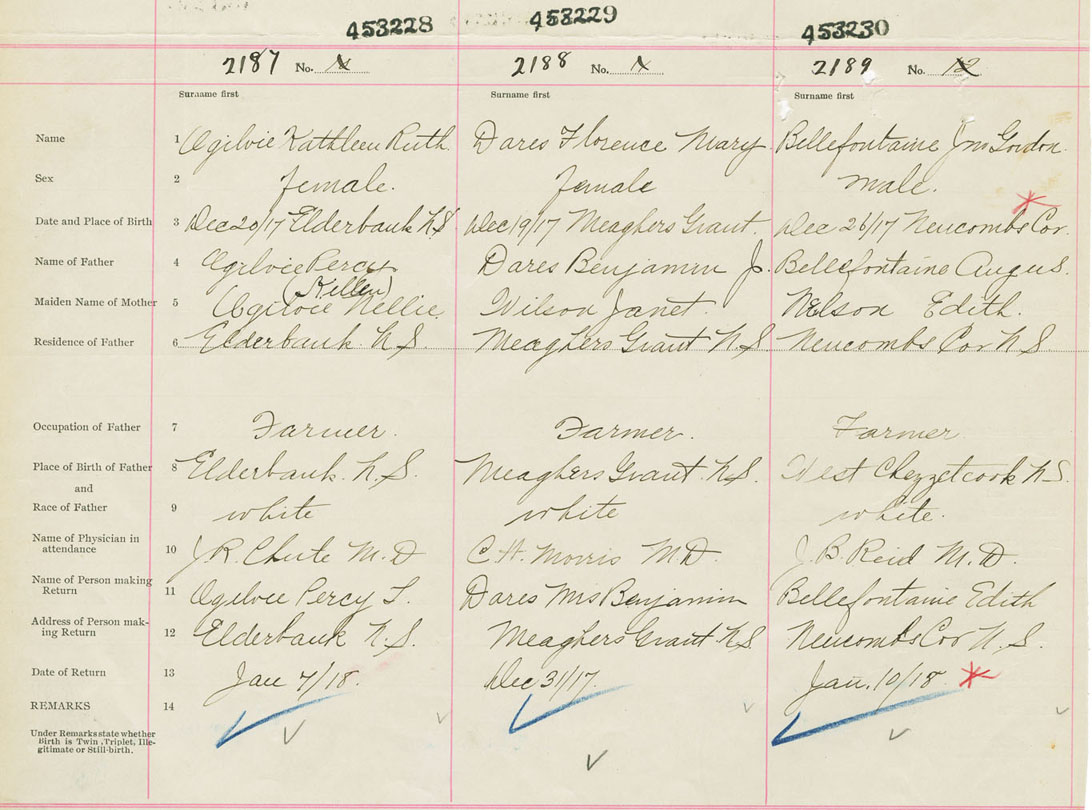 453228 453229 453230
2187 No. 2188 No. 2189 No. 12
Surname first Surname first Surname first
Name 1 Ogilvie Kathleen Ruth Dares Florence Mary Bellefontaine Jms Gordon
Sex 2 female. female male.
Date and Place of Birth 3 Dec 20/17 Elderbank N.S. Dec 19/17 Meaghers Grant. Dec 26/17 Newcombs Cor.
Name of Father 4 Ogilvie Percy Dares Benjamin J. Bellefontaine Angus.
(Killen)
Maiden Name of Mother 5 Ogilvie Nellie. Wilson Janet. Nelson Edith.
Residence of Father 6 Elderbank. N.S. Meaghers Grant N.S Newcombs Cor N S
Occupation of Father 7 Farmer. Farmer. Farmer.
Place of Birth of Father 8 Elderbank. N.S. Meaghers Grant. N.S West Chezzetcook N.S.
and
Race of Father 9 white white white.
Name of Physician in
attendance 10 J.R. Chute M.D C.H. Morris M.D. J.B. Reid M.D.
Name of Person making
Return 11 Ogilvie Percy L. Dares Mrs Benjamin Bellefontaine Edith
Address of Person mak-
ing Return 12 Elderbank N.S. Meaghers Grant N.S Newcombs Cor N.S.
Date of Return 13 Jan 7/18. Dec 31/17. Jan. 10/18.
REMARKS 14
Under Remarks state whether
Birth is Twin, Triplet, Ille-
gitimate or Still-birth.